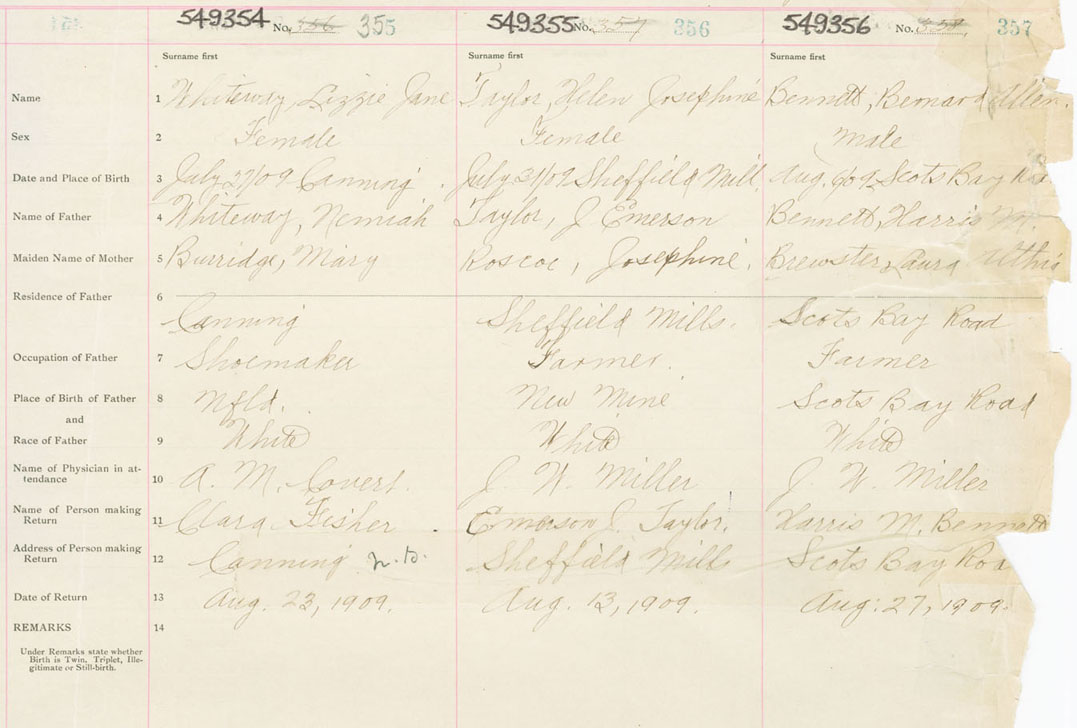 549354 No. 356 355 549355 No. 357 356 549356 No. 358 357
Surname first Surname first Surname first
Name 1 Whiteway, Lizzie Jane Taylor, Helen Josephine Bennett, Bernard Allen.
Sex 2 Female Female Male
Date and Place of Birth 3 July 27/09 Canning. July 31/09 Sheffield Mill Aug. 6/09 Scots Bay
Name of Father 4 Whiteway, Nemiah Taylor, J Emerson Bennett, Harris M.
Maiden Name of Mother 5 Burridge, Mary Roscoe, Josephine. Brewster, Laura
Residence of Father 6 Canning Sheffield Mills. Scots Bay Road
Occupation of Father 7 Shoemaker Farmer. Farmer
Place of Birth of Father 8 Nfld. New Mine Scots Bay Road
and
Race of Father 9 White White White
Name of Physician in at-
tendance 10 A. M. Covert. J. W. Miller J. W. Miller
Name of Person making
Return 11 Clara Fisher. Emerson J. Taylor. Harris M. Bennett
Address of Person making
Return 12 Canning Sheffield Mills Scots Bay Roa
Date of Return 13 Aug. 23, 1909. Aug. 13, 1909. Aug. 27, 1909.
REMARKS 14
Under Remarks state whether
Birth is Twin, Triplet, Ille-
gitimate or Still-birth.